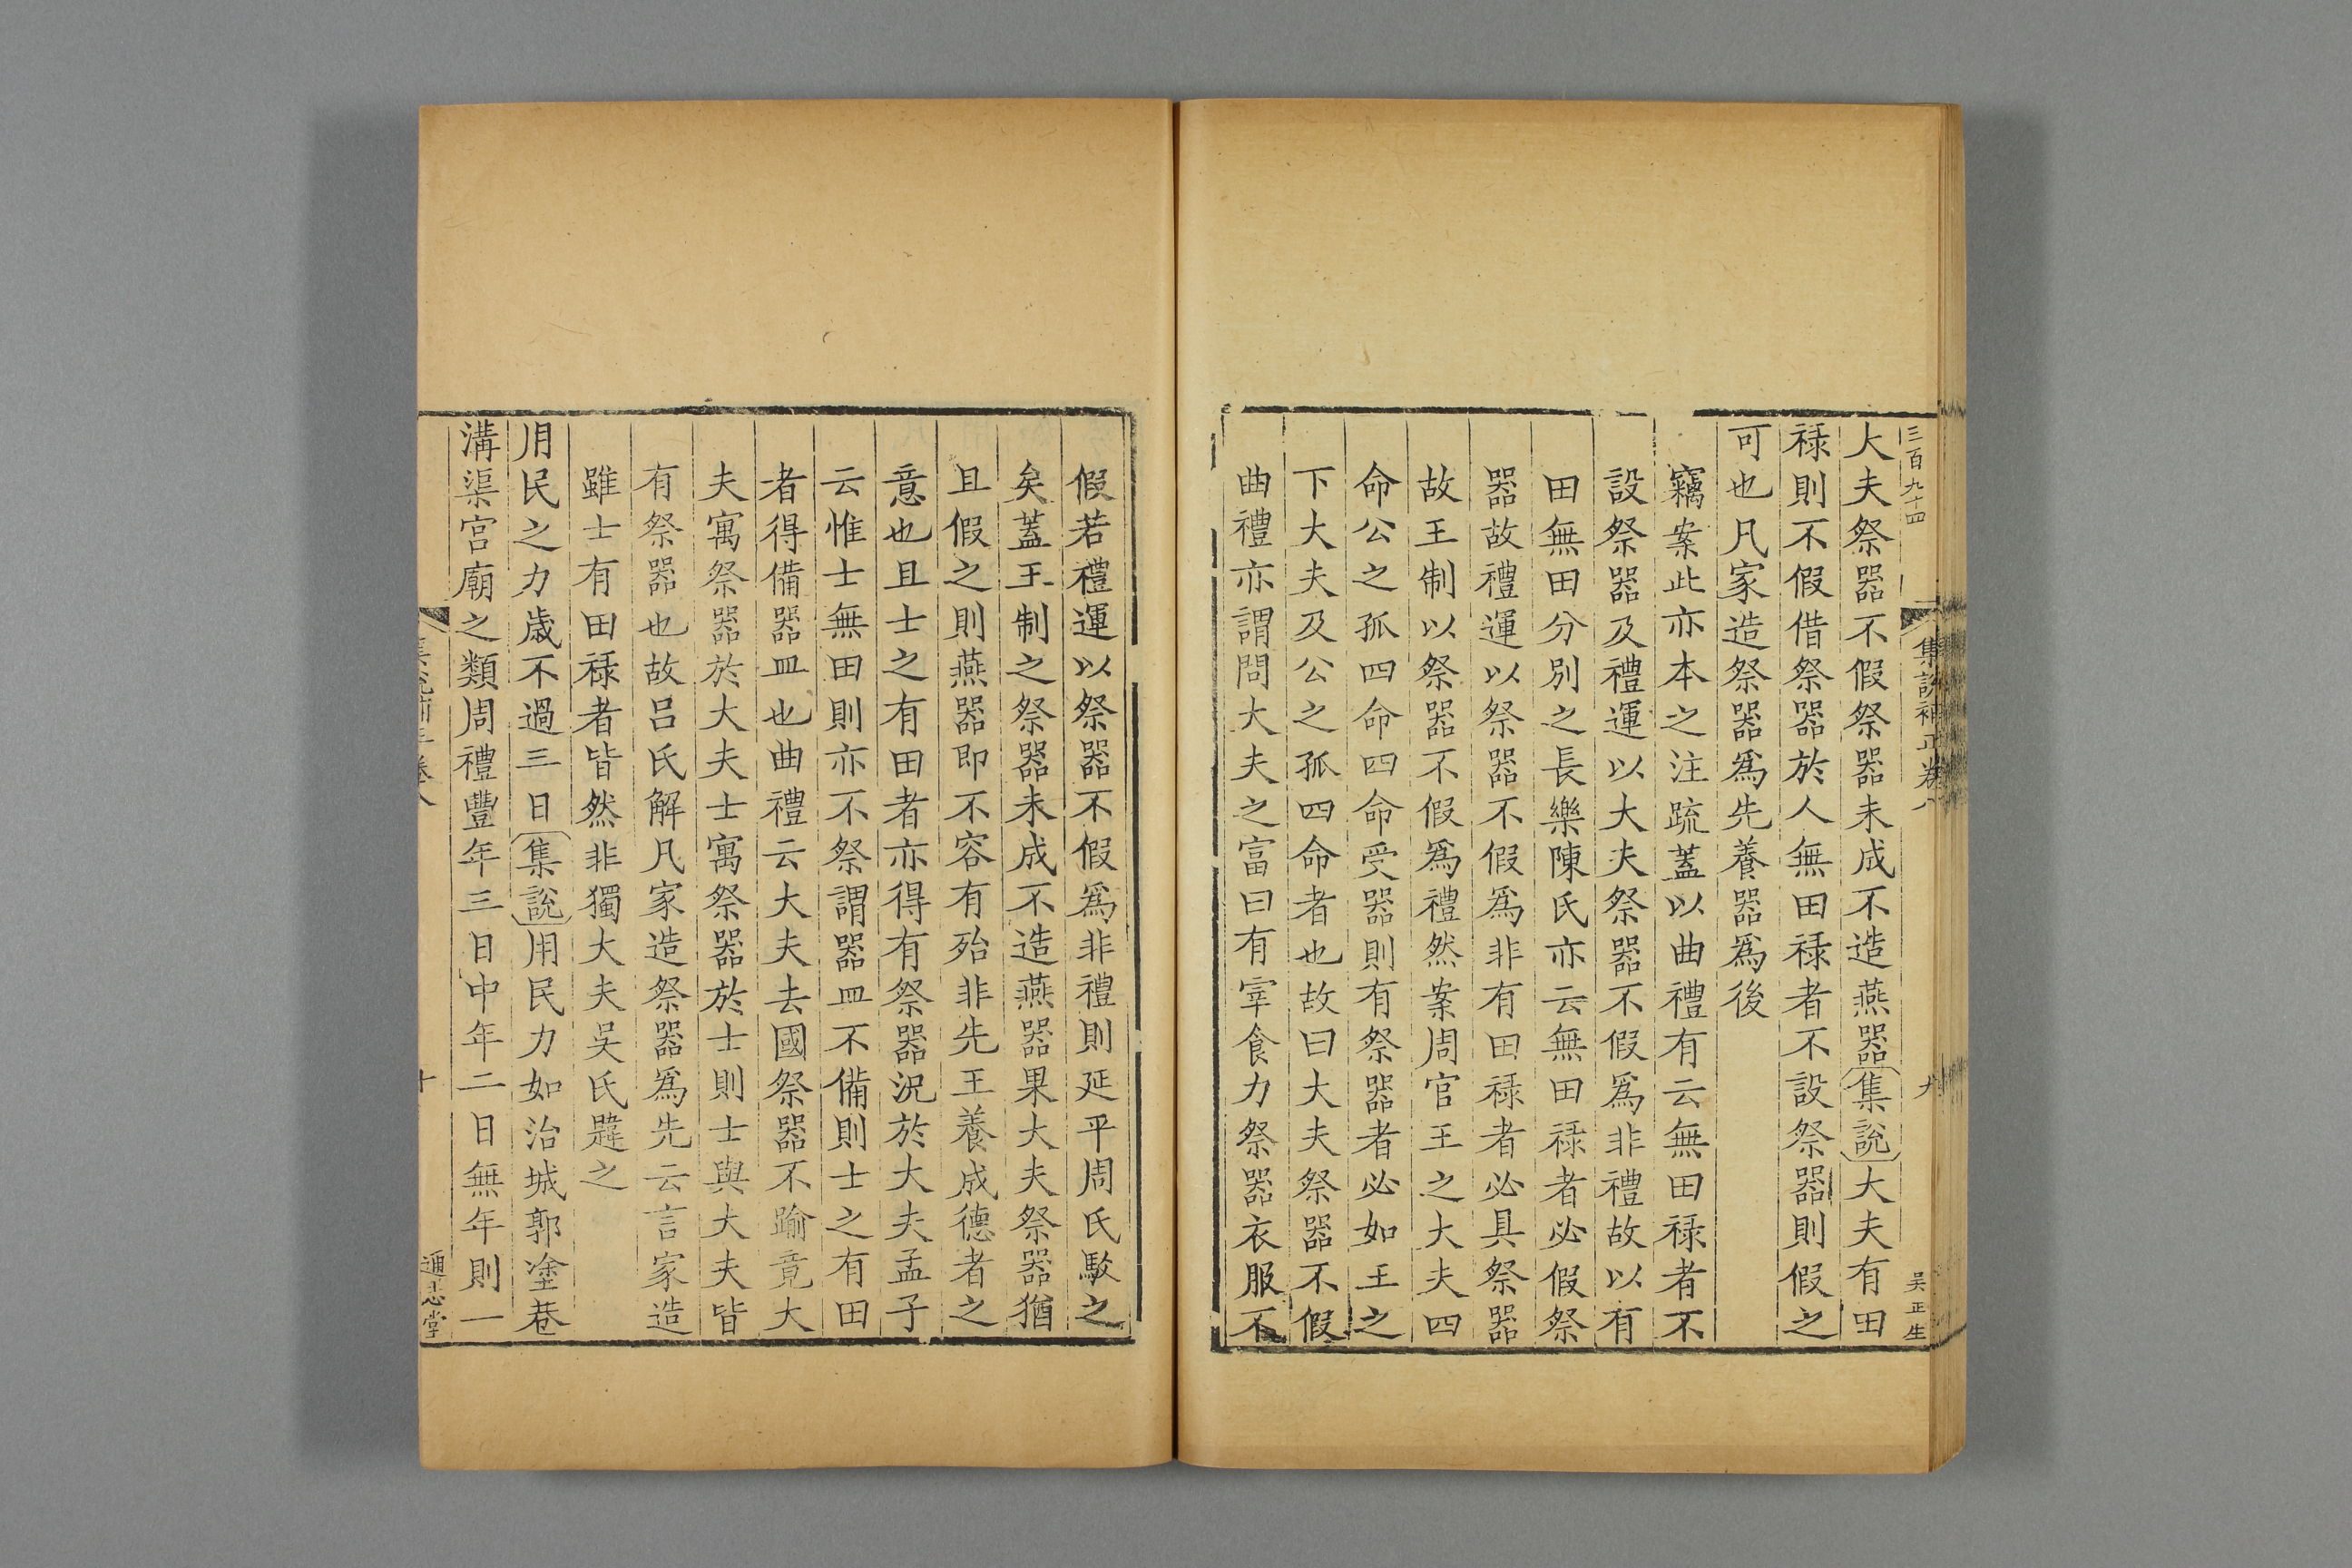 三百九十四
集說補正卷八
九
吴正生
大夫祭器不假祭器未成不造燕器集說大夫有田
禄則不假借祭器於人無田禄者不設祭器則假之
可也凡家造祭器爲先養器爲後
竊案此亦本之注疏蓋以曲禮有云無田禄者不
設祭器及禮運以大夫祭器不假爲非禮故以有
田無田分別之長樂陳氏亦云無田禄者必假祭
器故禮運以祭器不假爲非有田禄者必具祭器
故王制以祭器不假爲禮然案周官王之大夫四
命公之孤四命四命受器則有祭器者必如王之
下大夫及公之孤四命者也故曰大夫祭器不假
曲禮亦謂問大夫之富曰有宰食力祭器衣服不
假若禮運以祭器不假爲非禮則延平周氏駁之
矣蓋王制之祭器未成不造燕器果大夫祭器猶
且假之則燕器即不容有殆非先王養成德者之
意也且士之有田者亦得有祭器況於大夫孟子
云惟士無田則亦不祭謂器皿不備則士之有田
者得備器皿也曲禮云大夫去國祭器不踰竟大
夫寓祭器於大夫士寓祭器於士則士與大夫皆
有祭器也故吕氏解凡家造祭器爲先云言家造
雖士有田禄者皆然非獨大夫吴氏韙之
用民之力歲不過三日集說用民力如治城郭塗巷
溝渠宫廟之類周禮豐年三日中年二日無年則一
集說補正卷八
十
通志堂